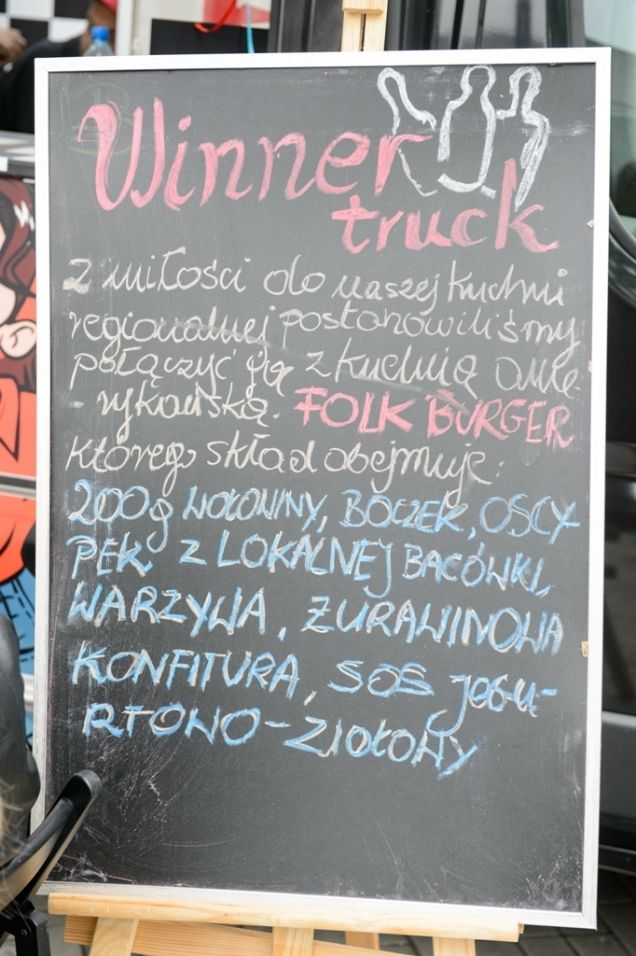 Winner
truck
Z miłości do naszej kuchni
regionalnej postanowiliśmy
połączyć ją z kuchnią ame
- rykańską. FOLK BURGER
którego skład obejmuje:
200g WOŁOWINY, BOCZEK, OSCY-
PEK Z LOKALNEJ BACÓWKI,
WARZYWA, ŻURAWINOWA
KONFITURA, SOS JOGU-
RTOWO-ZIOŁOWY